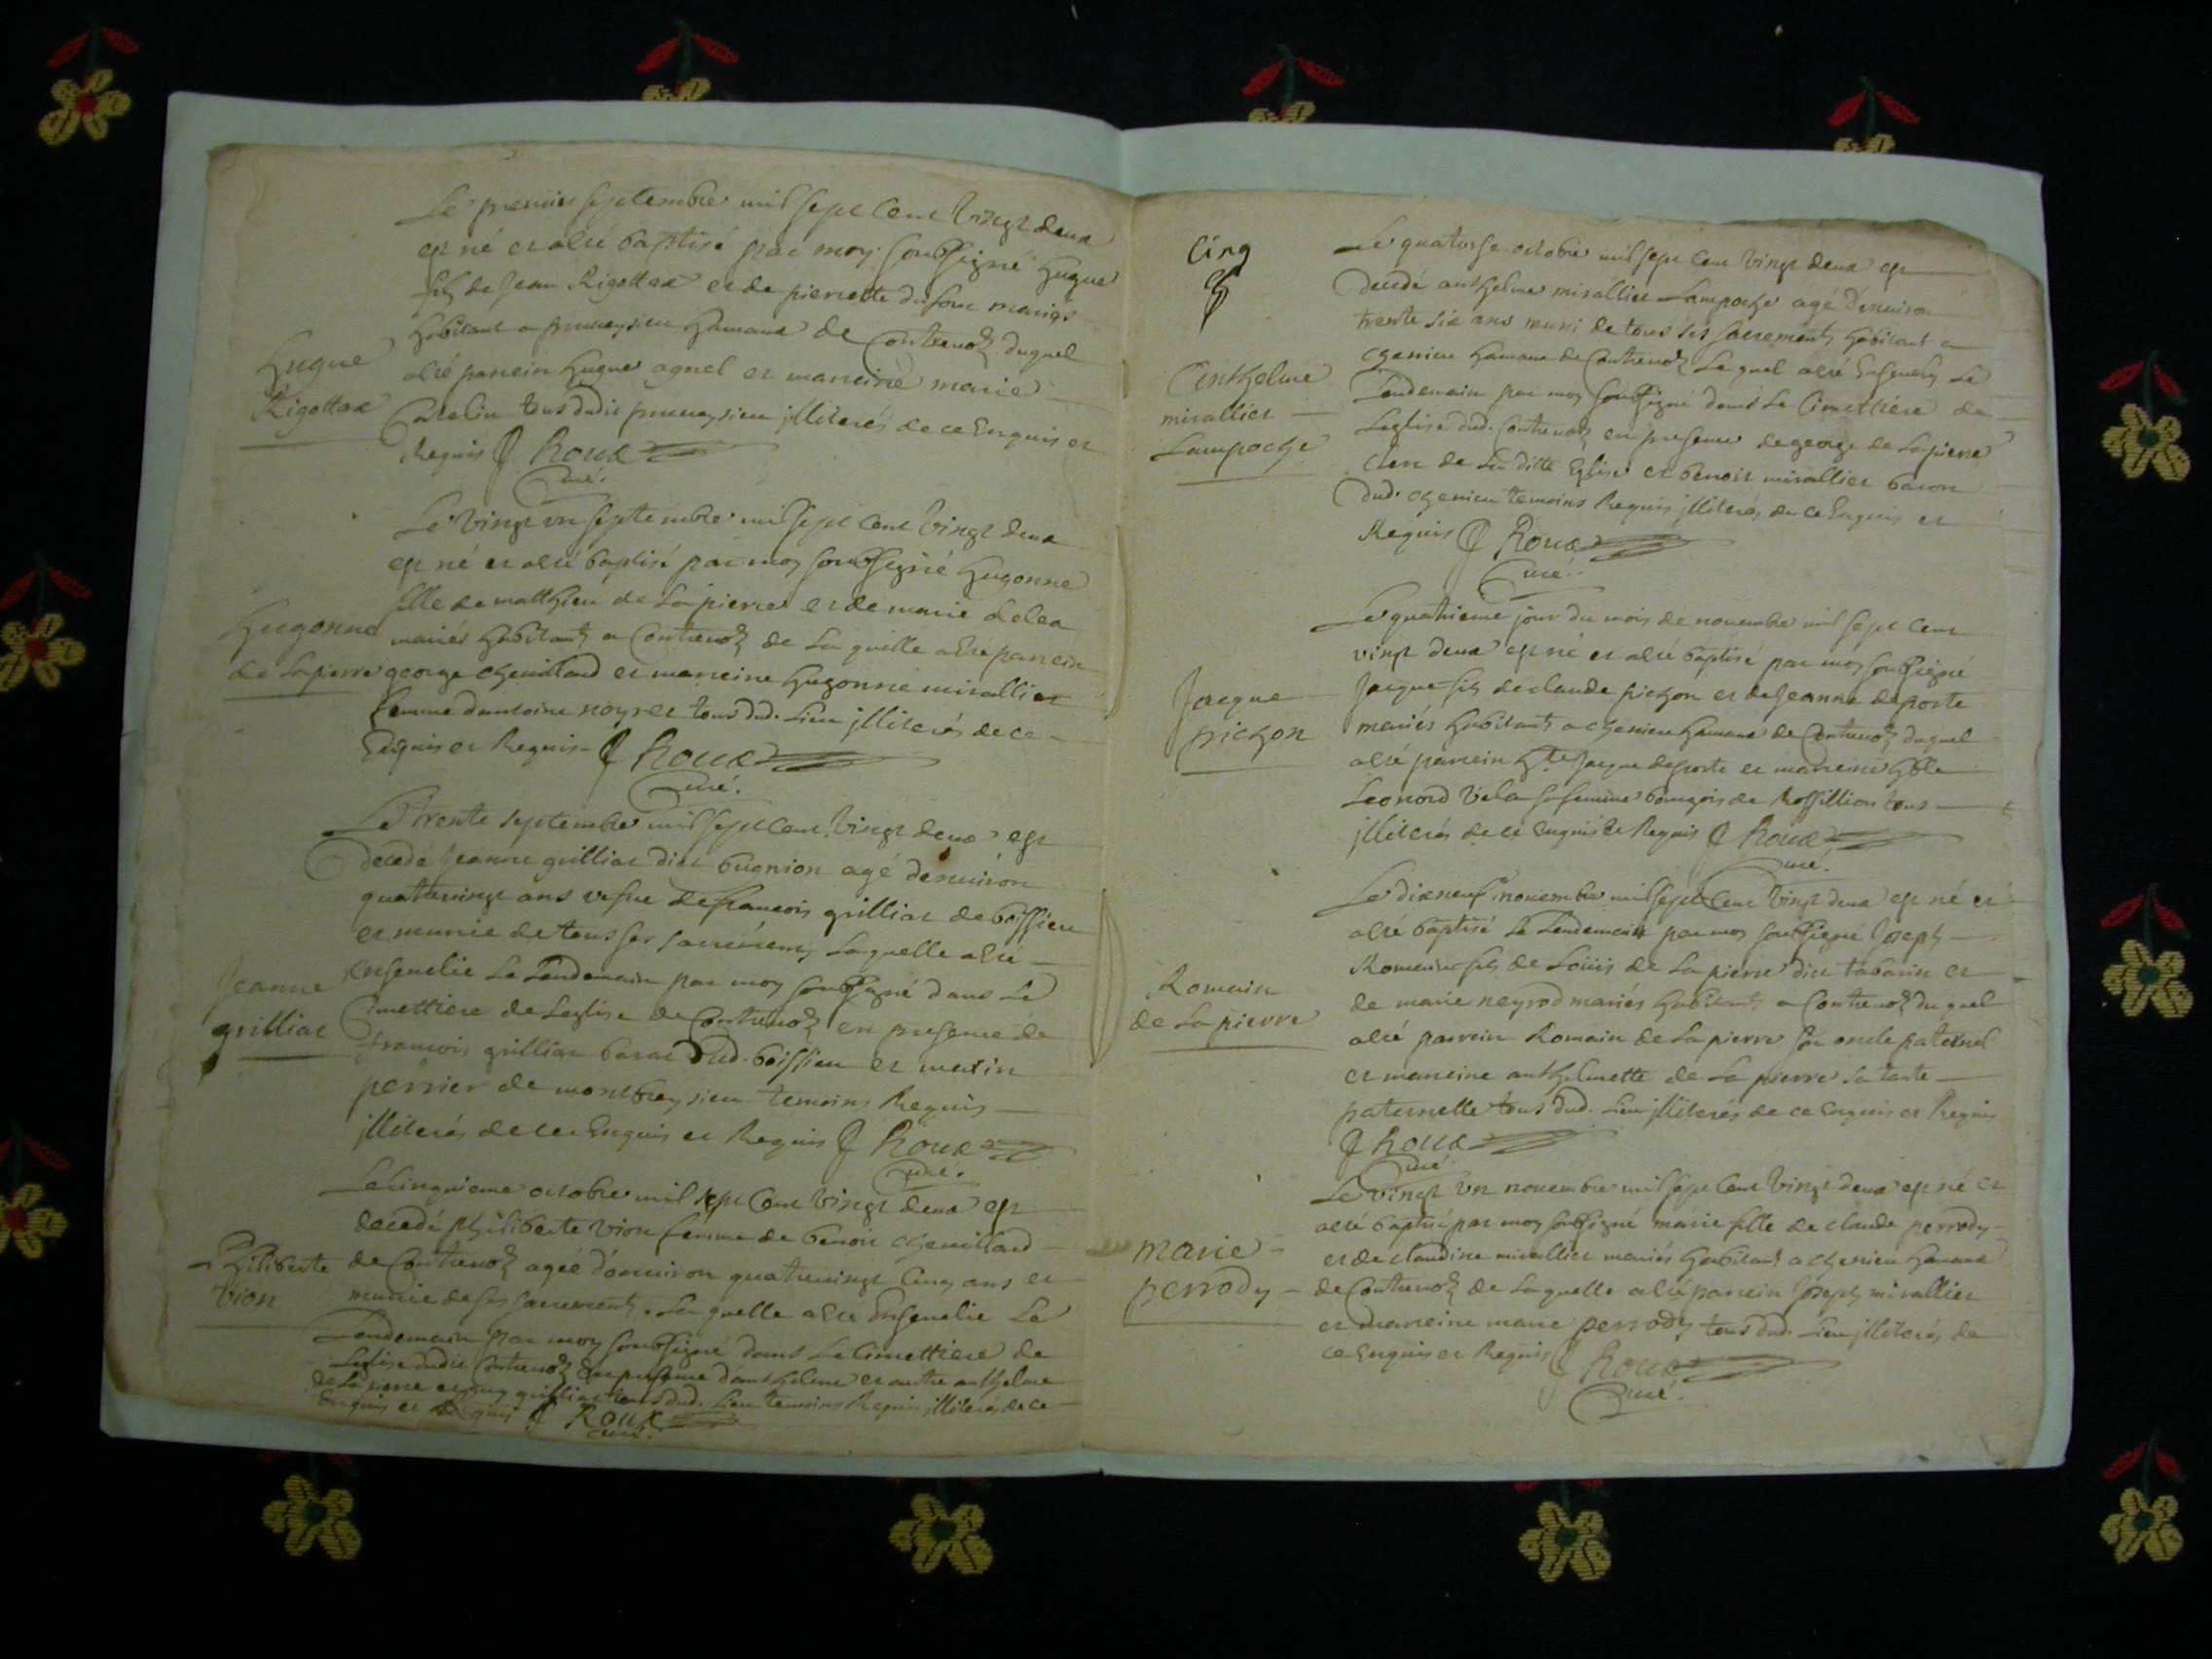 Le premier septembre mil sept cent vingt deux
est né et a esté baptisé par moy soubsigné hugue
fils de Jean Rigottax et de pierrette du four mariés
habitant a prumeysieu hamaux de Contrevoz duquel
Hugue
a été parrein hugue agnel et marreine marie
Rigottax
tous dudit prumeysieu illiterés de ce enquis et
Requis J Roux
Curé.
Le vingt un septembre mil sept cent vingt deux
est né et a esté baptisé par moy soubsigné hugonne
fille de matthieu de Lapierre et de marie
Hugonne
mariés habitants a Contrevoz de La quelle a esté parrein
de Lapierre
george chevilland et marreine hugonne mirallier
femme dantoine noyret tous dud. Lieu illiterés de ce
Enquis et Requis J Roux
Curé.
Le trente septembre mil sept cent vingt deux est
decedé Jeanne grilliat dite bugnion agé denviron
quatrevingt ans vefve de francois grilliat de boissieu
et munie de tous ses sacrements Laquelle a esté
Jeanne
Ensevelie Le Lendemain par moy soubsigné dans Le
grilliat
Cimettiere de Leglise de Contrevoz en presence de
francois grilliat dud. boissieu et
perrier de montbreysieu temoins Requis
illiterés de ce Enquis et Requis J Roux
Curé.
Le Cinquieme octobre mil sept Cent vingt deux est
decedé philiberte vion femme de benoit chevilland
Philiberte
vion
de Contrevoz agée d'environ quatrevingt Cinq ans et
munie de ses sacrements. La quelle a esté Ensevelie Le
Lendemain par moy soubsigné dans Le Cimettiere de
Leglise dudit Contrevoz En presence d'anthelme et autre anthelme
de Lapierre et grilliat tous dud. Lieu temoins Requis illiterés de ce
Enquis et Requis J Roux
Curé.
Cinq
5
Le quatorse octobre mil sept Cent vingt deux est
decedé anthelme mirallier Lampoche agé denviron
trente six ans muni de tous ses sacrements habitant a
Anthelme
mirallier
Lampoche
chenieu hamaux de Contrevoz Le quel a esté Ensevely Le
Lendemain par moy soubsigné dans Le Cimettiere de
Leglise dud. Contrevoz en presence de george de Lapierre
clerc de La ditte Eglise et benoit mirallier baron
dud. chenieu temoins Requis illiterés de ce Enquis et
Requis J Roux
Curé.
Le quatrieme jour du mois de novembre mil sept cent
vingt deux est né et a esté baptisé par moy soubsigné
Jacque
pichon
Jacque fils de claude pichon et de Jeanne deporte
mariés habitants a chenieu hamaux de Contrevoz duquel
a esté parrein Jacque deporte et marreine
Leonord Vela sa femme bourgois de Rossillion tous
illiterés de ce Enquis et Requis J Roux
Curé.
Le dixneuf novembre mil sept Cent vingt deux est né et
a esté baptisé Le Lendemain par moy soubsigné Joseph
Romain
de Lapierre
Romain fils de Loüis de Lapierre dit tabarin et
de marie neyrod mariés habitants a Contrevoz du quel
a esté parrein Romain de Lapierre son oncle paternel
et marreine anthelmette de Lapierre sa tante
paternelle tous dud. Lieu illiterés de ce Enquis et Requis
J Roux
Curé
Le vingt un novembre mil sept Cent vingt deux est né et
a esté baptisé par moy soubsigné marie fille de claude perrody
marie
perrody
et de claudine mirallier mariés habitants a chenieu hamaux
de Contrevoz de Laquelle a esté parrein Joseph mirallier
et marreine marie perrody tous dud. Lieu illiterés de
ce Enquis et Requis J Roux
Curé.